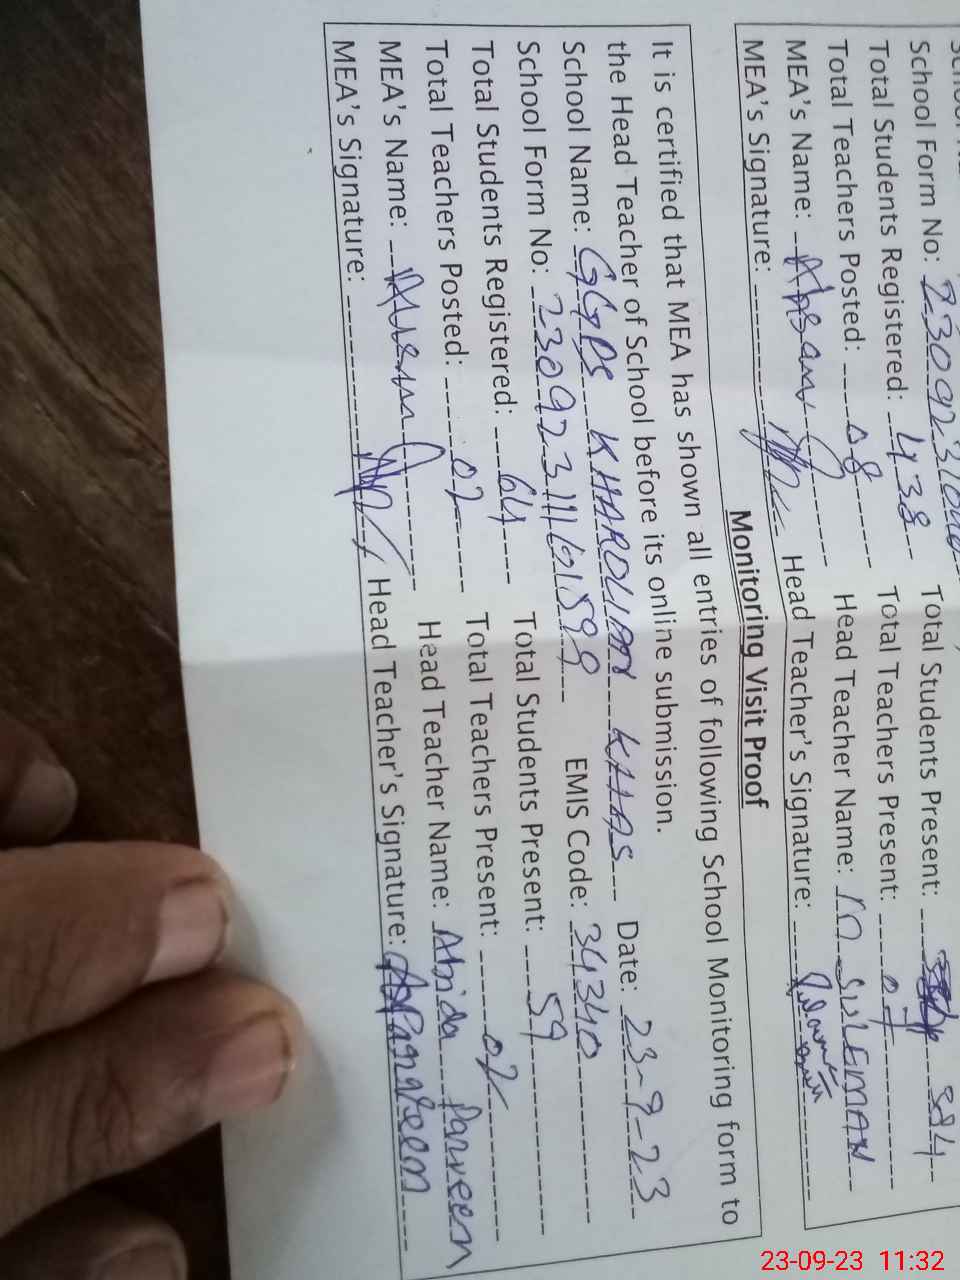 School Form No: 2309231000 Total Students Present: 384
Total Students Registered: 438 Total Teachers Present: 07
Total Teachers Posted: 08 Head Teacher Name: M SULEMAN
MEA's Name: Ahsan Head Teacher's Signature:
MEA's Signature:
Monitoring Visit Proof
It is certified that MEA has shown all entries of following School Monitoring form to
the Head Teacher of School before its online submission.
School Name: GGPS KHAROLIAN KHAS Date: 23-9-23
School Form No: EMIS Code: 34340
Total Students Registered: 64 Total Students Present: 59
Total Teachers Posted: 02 Total Teachers Present: 02
MEA's Name: Head Teacher Name: Abida Parveen
MEA's Signature: Head Teacher's Signature:
23-09-23 11:32